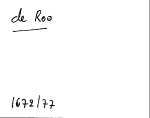 de Roo
1672/77